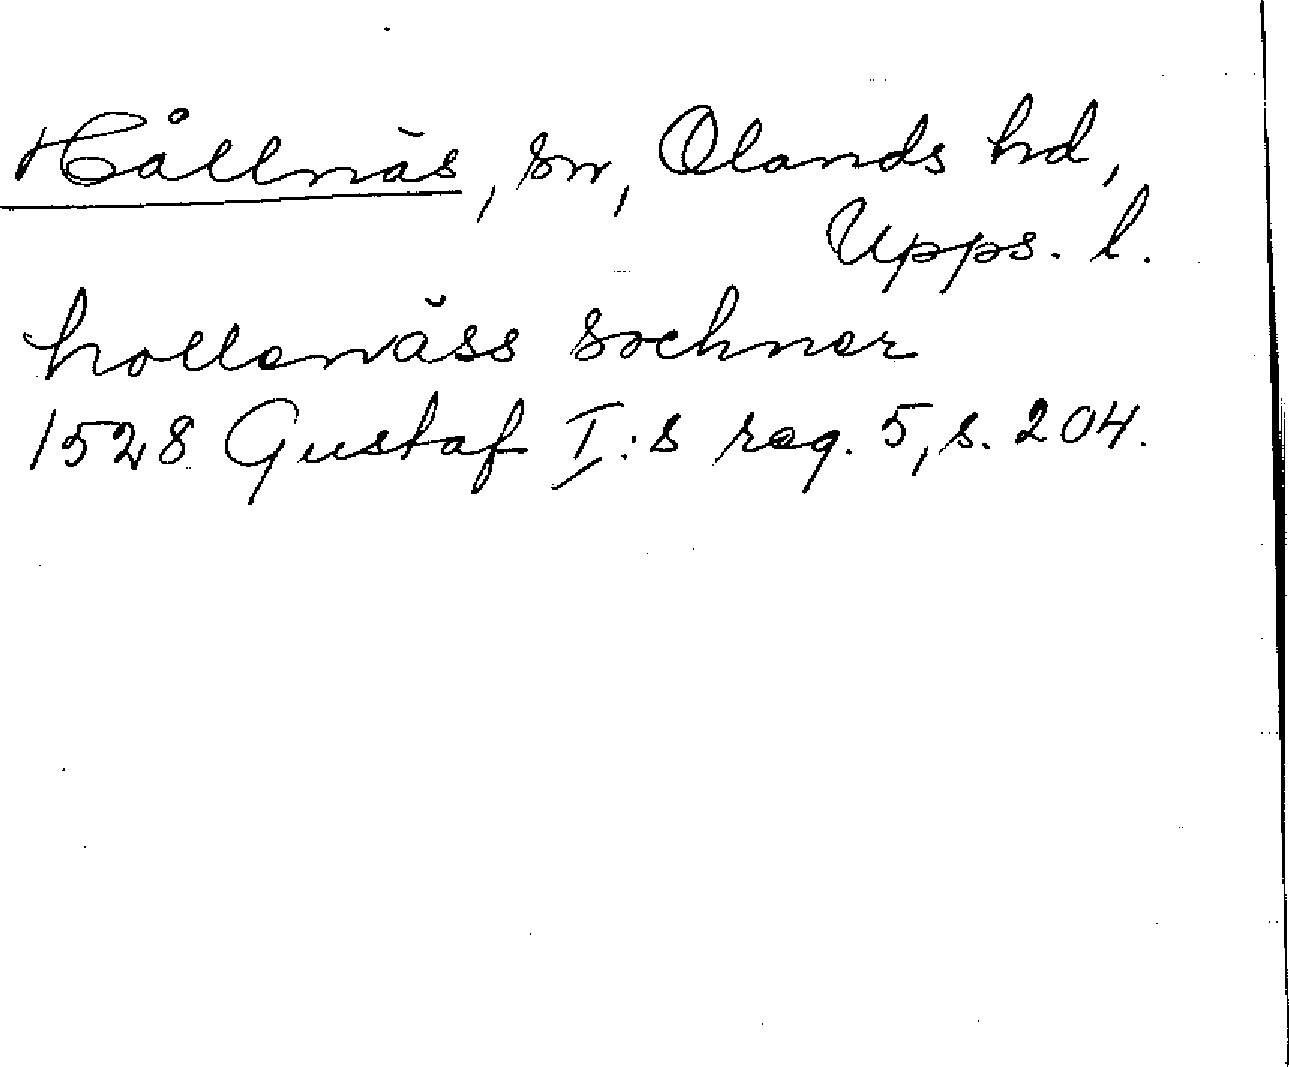 Hållnäs, sn, Olands hd,
Upps. l.
hollenäss sochner
1528 Gustaf I:s reg. 5, s. 204.